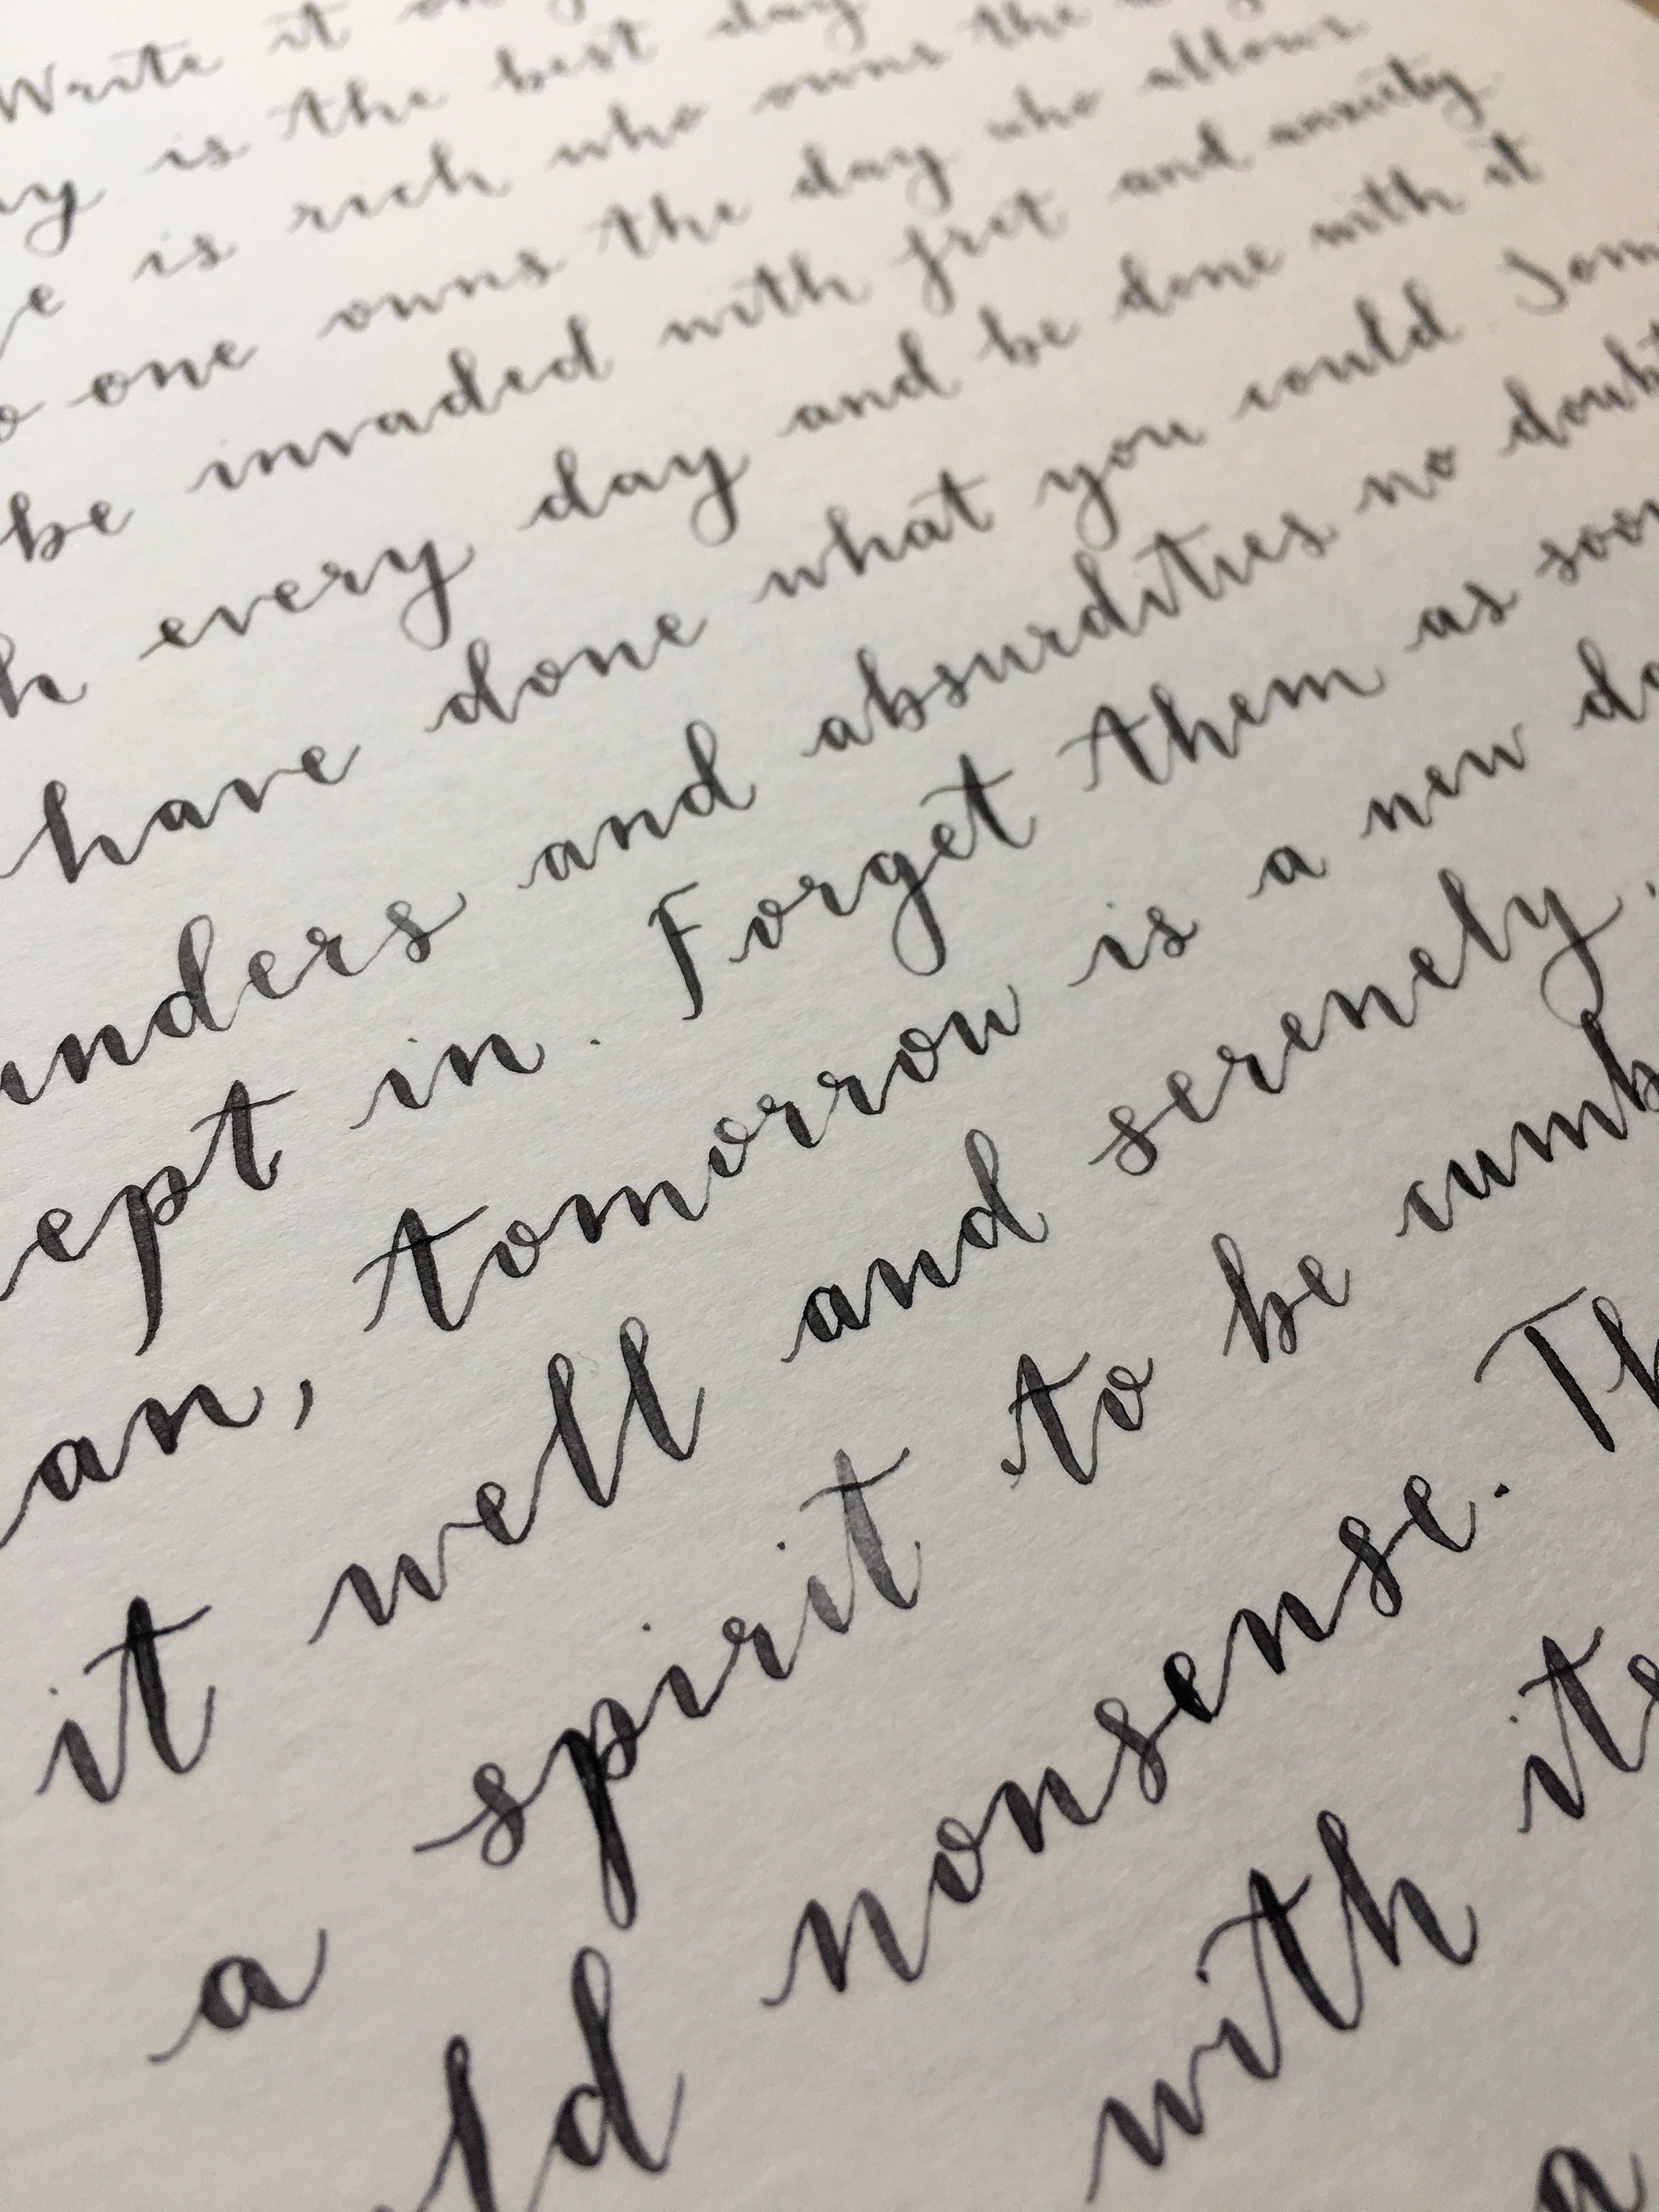 Write it on
is the best day
is rich who owns the
one owns the day who allows
be invaded with fret and anxiety
every day and be done with it
have done what you could. Som
unders and absurdities no doubt
ept in. Forget them as soon
an, tomorrow is a new da
it well and serenely,
a spirit to be cumb
ld nonsense. Th
with its
a